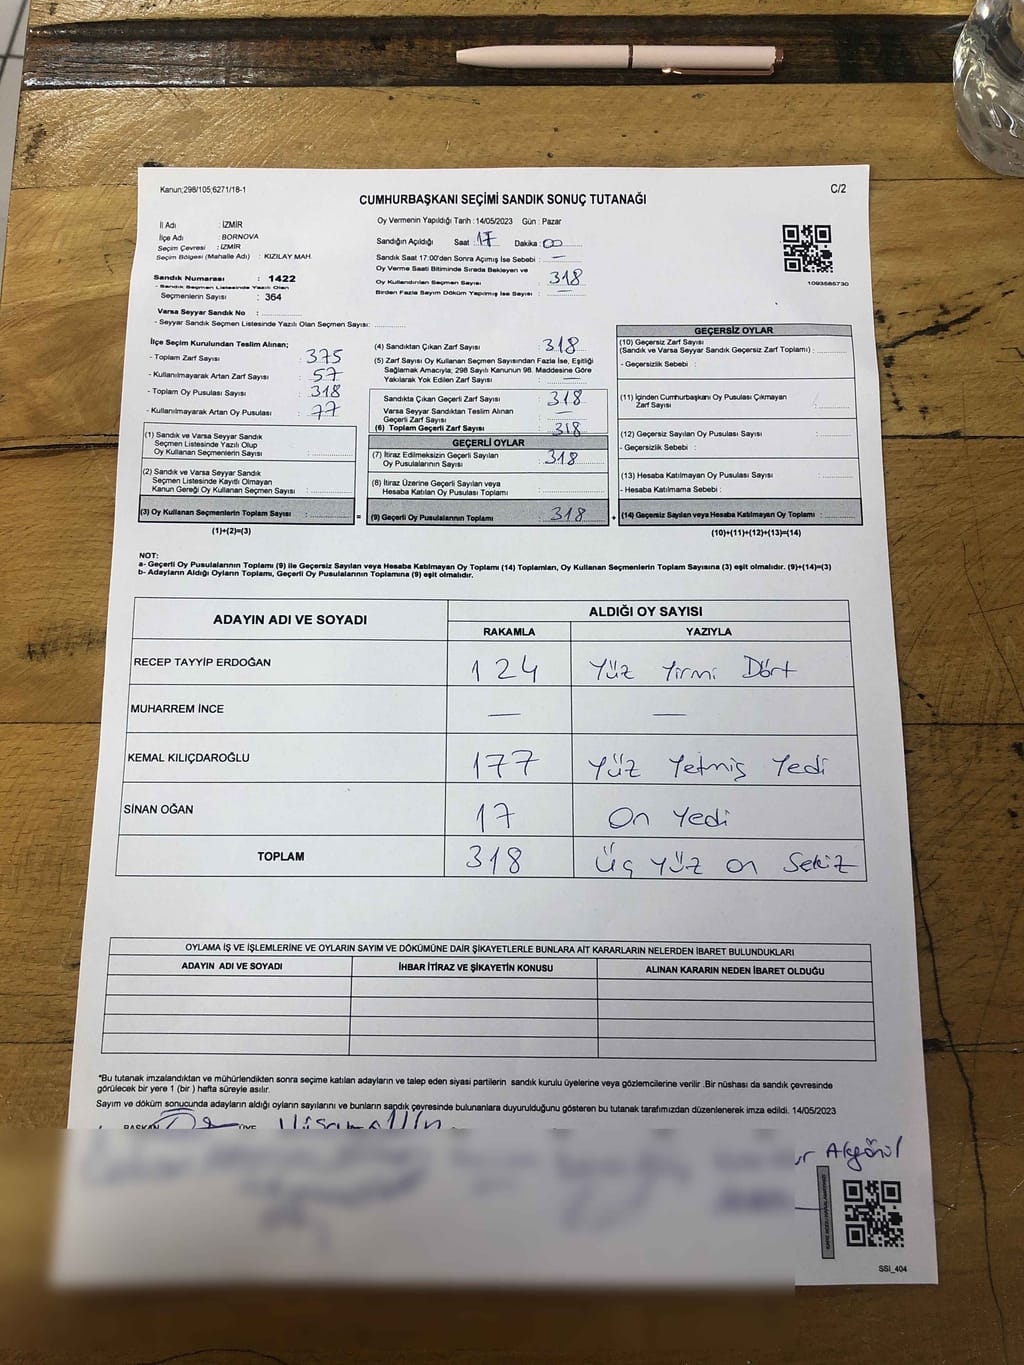 Kanun;298/105;6271/18-1
C/2
CUMHURBAŞKANI SEÇİMİ SANDIK SONUÇ TUTANAĞI
İl Adı : İZMİR
İlçe Adı : BORNOVA
Seçim Çevresi : İZMİR
Seçim Bölgesi (Mahalle Adı) : KIZILAY MAH.
Sandık Numarası : 1422
- Sandık Seçmen Listesinde Yazılı Olan
Seçmenlerin Sayısı : 364
Varsa Seyyar Sandık No :
- Seyyar Sandık Seçmen Listesinde Yazılı Olan Seçmen Sayısı:
Oy Vermenin Yapıldığı Tarih : 14/05/2023 Gün : Pazar
Sandığın Açıldığı Saat : 17 Dakika : 00
Sandık Saat 17:00'den Sonra Açımış İse Sebebi : —
Oy Verme Saati Bitiminde Sırada Bekleyen ve
Oy Kullandırılan Seçmen Sayısı : 318
Birden Fazla Sayım Döküm Yapılmış İse Sayısı : —
1093585730
İlçe Seçim Kurulundan Teslim Alınan;
- Toplam Zarf Sayısı : 375
- Kullanılmayarak Artan Zarf Sayısı : 57
- Toplam Oy Pusulası Sayısı : 318
- Kullanılmayarak Artan Oy Pusulası : 77
(1) Sandık ve Varsa Seyyar Sandık
Seçmen Listesinde Yazılı Olup
Oy Kullanan Seçmenlerin Sayısı :
(2) Sandık ve Varsa Seyyar Sandık
Seçmen Listesinde Kayıtlı Olmayan
Kanun Gereği Oy Kullanan Seçmen Sayısı :
(3) Oy Kullanan Seçmenlerin Toplam Sayısı :
(1)+(2)=(3)
(4) Sandıktan Çıkan Zarf Sayısı : 318
(5) Zarf Sayısı Oy Kullanan Seçmen Sayısından Fazla İse, Eşitliği
Sağlamak Amacıyla; 298 Sayılı Kanunun 98. Maddesine Göre
Yakılarak Yok Edilen Zarf Sayısı : —
Sandıkta Çıkan Geçerli Zarf Sayısı : 318
Varsa Seyyar Sandıktan Teslim Alınan
Geçerli Zarf Sayısı : —
(6) Toplam Geçerli Zarf Sayısı : 318
GEÇERLİ OYLAR
(7) İtiraz Edilmeksizin Geçerli Sayılan
Oy Pusulalarının Sayısı : 318
(8) İtiraz Üzerine Geçerli Sayılan veya
Hesaba Katılan Oy Pusulası Toplamı :
= (9) Geçerli Oy Pusulalarının Toplamı : 318 +
GEÇERSİZ OYLAR
(10) Geçersiz Zarf Sayısı
(Sandık ve Varsa Seyyar Sandık Geçersiz Zarf Toplamı) :
- Geçersizlik Sebebi :
(11) İçinden Cumhurbaşkanı Oy Pusulası Çıkmayan
Zarf Sayısı :
(12) Geçersiz Sayılan Oy Pusulası Sayısı :
- Geçersizlik Sebebi :
(13) Hesaba Katılmayan Oy Pusulası Sayısı :
- Hesaba Katılmama Sebebi :
(14) Geçersiz Sayılan veya Hesaba Katılmayan Oy Toplamı :
(10)+(11)+(12)+(13)=(14)
NOT:
a- Geçerli Oy Pusulalarının Toplamı (9) ile Geçersiz Sayılan veya Hesaba Katılmayan Oy Toplamı (14) Toplamları, Oy Kullanan Seçmenlerin Toplam Sayısına (3) eşit olmalıdır. (9)+(14)=(3)
b- Adayların Aldığı Oyların Toplamı, Geçerli Oy Pusulalarının Toplamına (9) eşit olmalıdır.
ADAYIN ADI VE SOYADI ALDIĞI OY SAYISI
RAKAMLA YAZIYLA
RECEP TAYYİP ERDOĞAN 124 Yüz Yirmi Dört
MUHARREM İNCE — —
KEMAL KILIÇDAROĞLU 177 Yüz Yetmiş Yedi
SİNAN OĞAN 17 On Yedi
TOPLAM 318 Üç Yüz on Sekiz
OYLAMA İŞ VE İŞLEMLERİNE VE OYLARIN SAYIM VE DÖKÜMÜNE DAİR ŞİKAYETLERLE BUNLARA AİT KARARLARIN NELERDEN İBARET BULUNDUKLARI
ADAYIN ADI VE SOYADI İHBAR İTİRAZ VE ŞİKAYETİN KONUSU ALINAN KARARIN NEDEN İBARET OLDUĞU
*Bu tutanak imzalandıktan ve mühürlendikten sonra seçime katılan adayların ve talep eden siyasi partilerin sandık kurulu üyelerine veya gözlemcilerine verilir .Bir nüshası da sandık çevresinde
görülecek bir yere 1 (bir ) hafta süreyle asılır.
Sayım ve döküm sonucunda adayların aldığı oyların sayılarını ve bunların sandık çevresinde bulunanlara duyurulduğunu gösteren bu tutanak tarafımızdan düzenlenerek imza edildi. 14/05/2023
BAŞKAN ÜYE
Akgönül
SSI_404